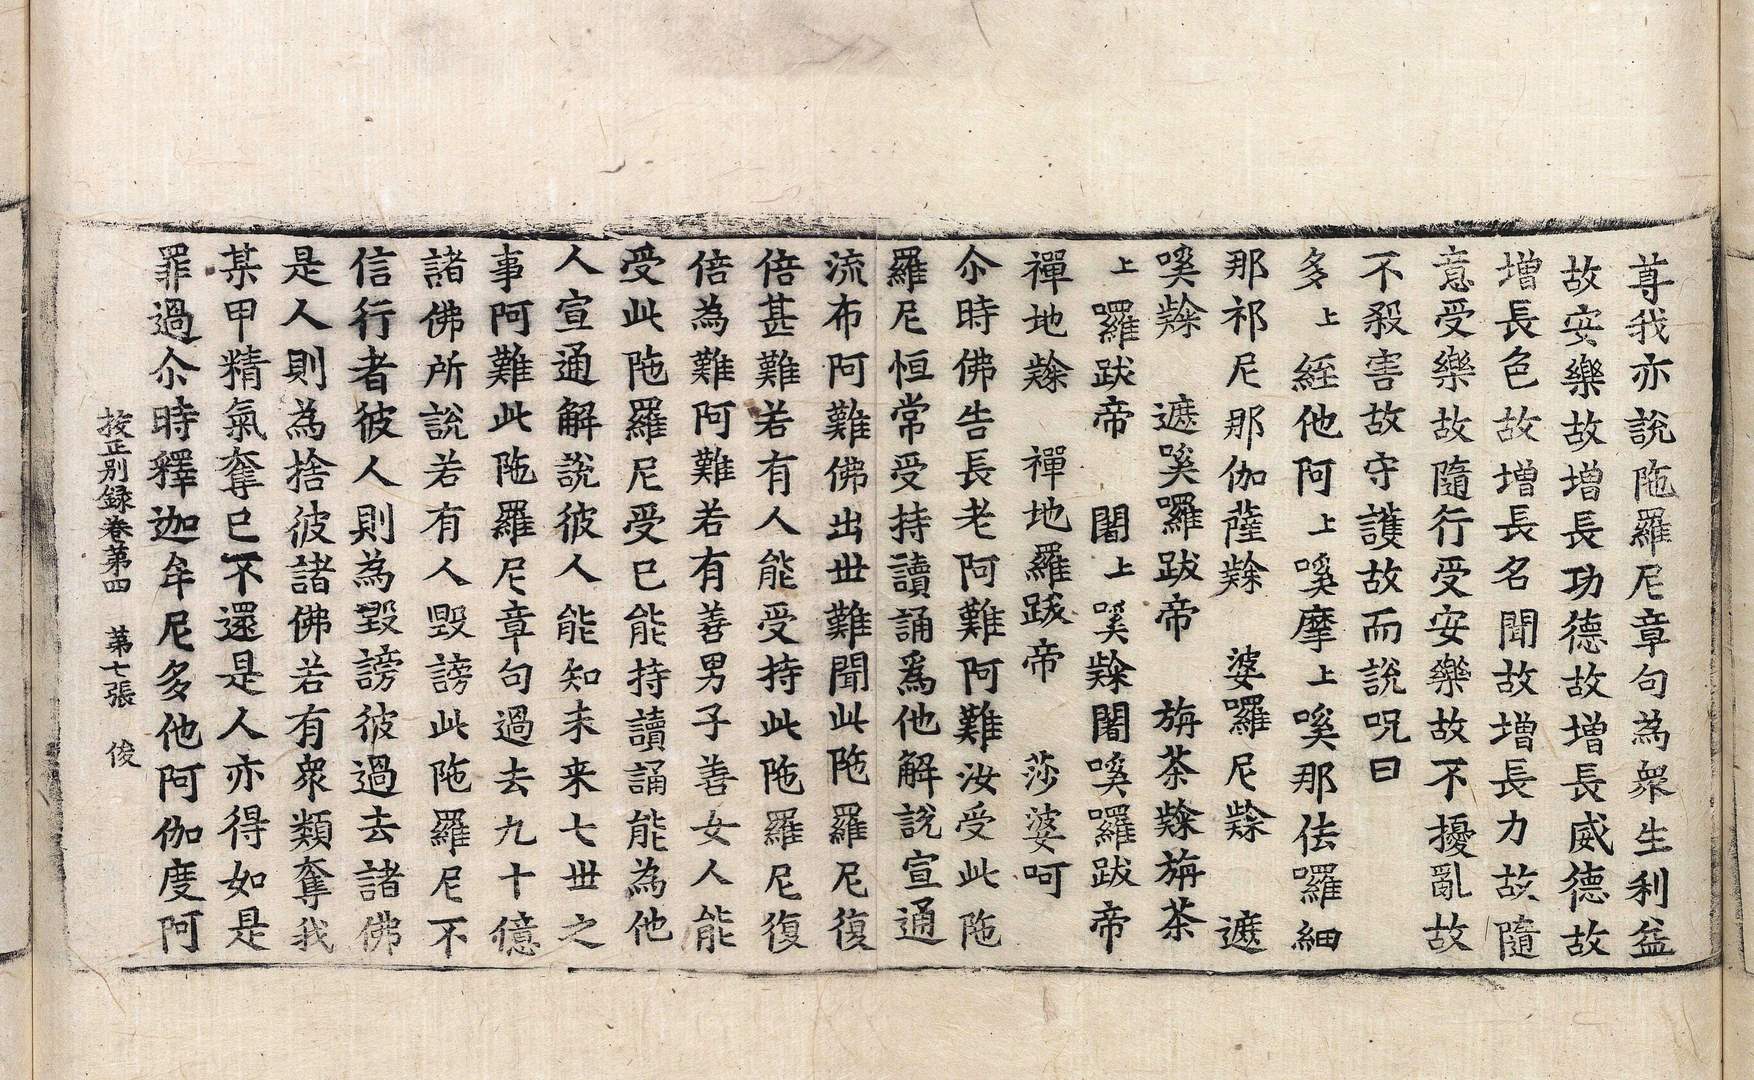 尊我亦說陁羅尼章句為衆生利益
故安樂故增長功德故增長威德故
增長色故增長名聞故增長力故隨
意受樂故隨行受安樂故不擾亂故
不殺害故守護故而說呪曰
多上絰他阿上嘇摩上嘇那佉囉細
那祁尼那伽薩𪘨 婆囉尼𪘨 遮
嘇𪘨 遮嘇囉跋帝 旃荼𪘨旃荼
上囉跋帝 闍上嘇𪘨闍嘇囉跋帝
禪地𪘨 禪地羅跋帝 莎婆呵
尒時佛告長老阿難阿難汝受此陁
羅尼恒常受持讀誦爲他解說宣通
流布阿難佛出世難聞此陁羅尼復
倍甚難若有人能受持此陁羅尼復
倍為難阿難若有善男子善女人能
受此陁羅尼受已能持讀誦能為他
人宣通解說彼人能知未来七世之
事阿難此陁羅尼章句過去九十億
諸佛所說若有人毁謗此陁羅尼不
信行者彼人則為毁謗彼過去諸佛
是人則為捨彼諸佛若有衆類奪我
某甲精氣奪已不還是人亦得如是
罪過尒時釋迦牟尼多他阿伽度阿
挍正別録卷第四 第七張 俊